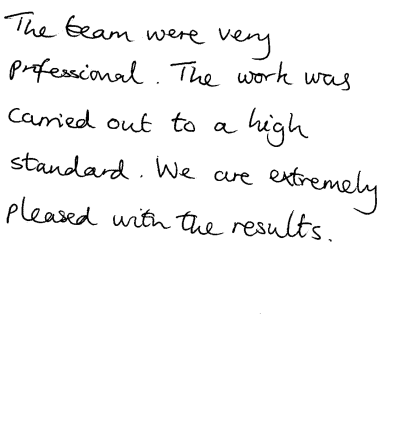 The team were very
professional. The work was
carried out to a high
standard. We are extremely
pleased with the results.